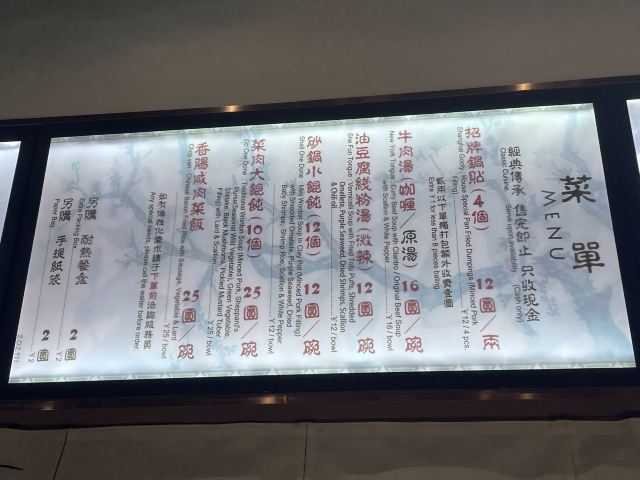 菜單
MENU
經典傳承 售完即止 只收現金
Classic Cuisine. Serve upon availability. (Cash only)
招牌鍋貼(4個) 12圓/兩
Shanghai Gold House Special Pan Fried Dumplings (Minced Pork Filling) Y12 / 4 pcs.
Extra Y1 for less than 8 pieces
牛肉湯(咖喱/原湯) 16圓/碗
New York Tongue Curry Beef Soup with Cilantro / Original Beef Soup with Scallion & White Pepper Y16 / bowl
油豆腐綫粉湯(微辣) 12圓/碗
Vermicelli Soup with Fried Tofu Puffs, Shredded Omelets, Purple Seaweed, Dried Shrimps, Scallion & Chili oil. Y12 / bowl
砂鍋小餛飩(12個) 12圓/碗
Shell One Done - Mini Wonton Soup in Clay Pot (Minced Pork Filling) with Shredded Omelets, Purple Seaweed, Dried Baby Shrimps, Shrimp Roe, Scallion & White Pepper Y12 / bowl
菜肉大餛飩(10個) 25圓/碗
Traditional Wonton Soup (Minced Pork, Shepherd's Purse/Seasonal Wild Vegetable), Green Vegetable, Shiitake, Black Mushrooms, Pickled Mustard Tuber Filling) with Lard & Scallion Y25 / bowl
香腸咸肉菜飯 25圓/碗
Chinese Bacon Fried Rice with Sausage, Vegetable & Lard Y25 / bowl
Any special needs, please call the waiter before order.
另購 耐熱餐盒 2圓
Extra Packing Box Y2
另購 手提紙袋 2圓
Paper Bag Y2